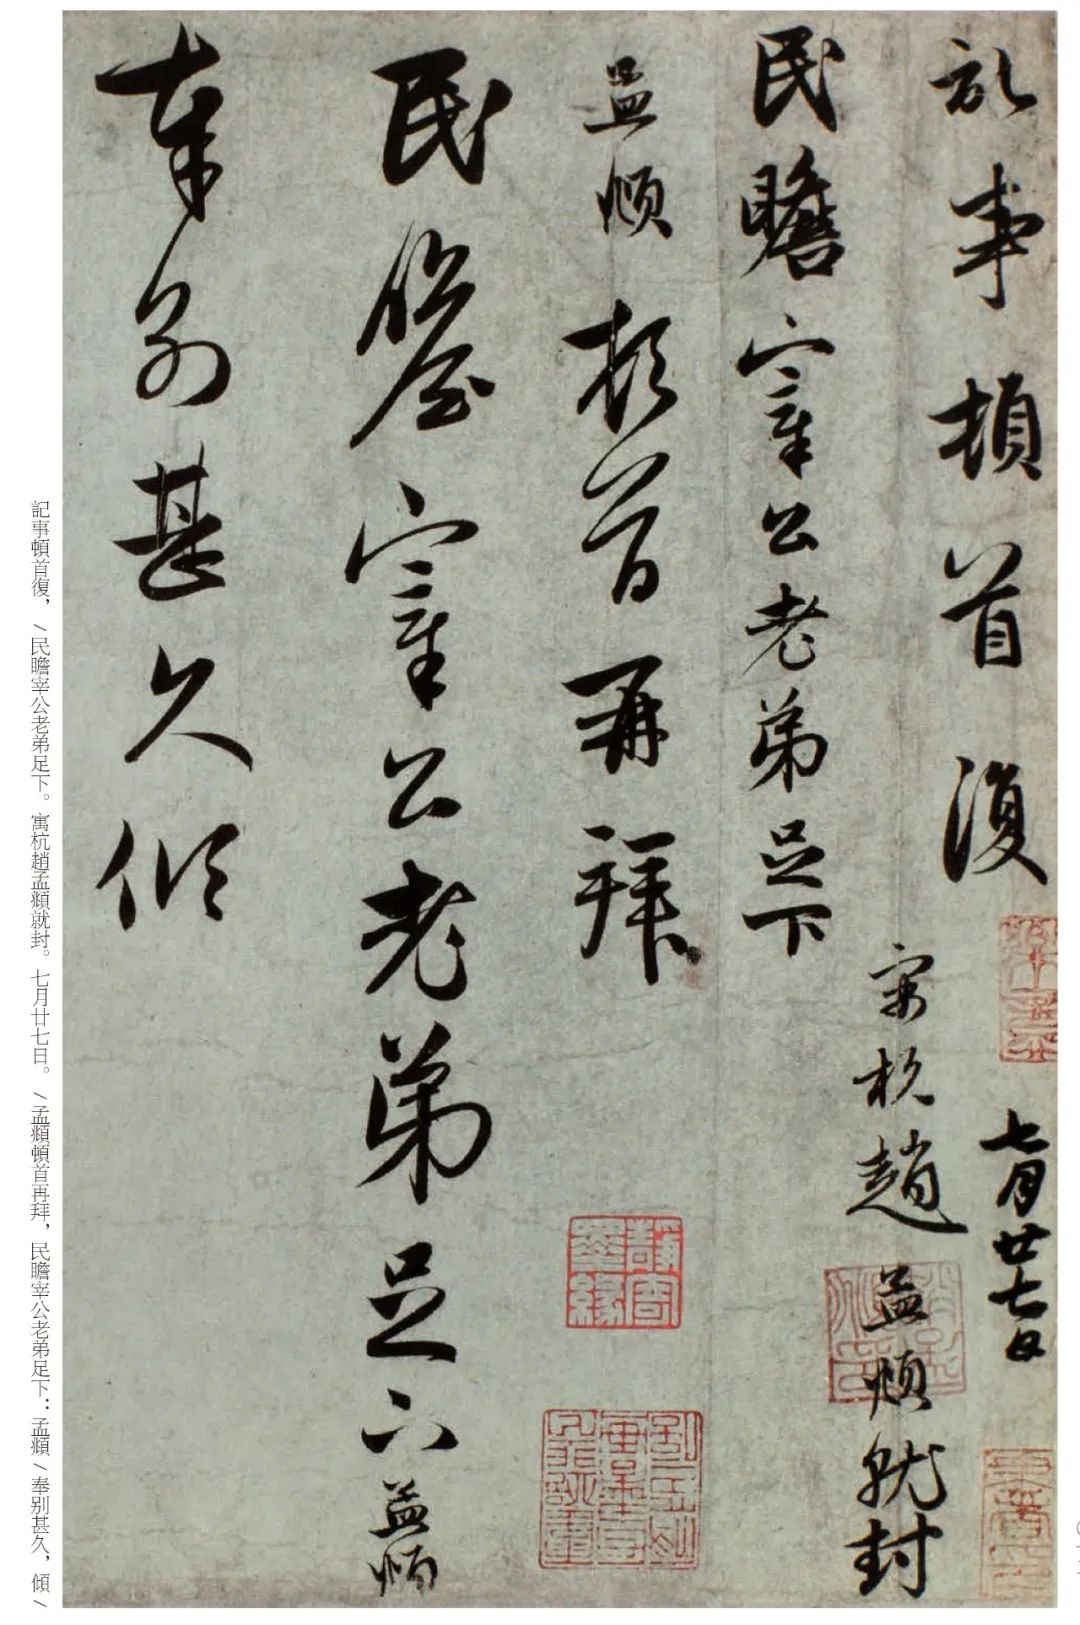 記事頓首復
民瞻宰公老弟足下
寓杭趙孟頫就封
七月廿七日
孟頫頓首再拜
民瞻宰公老弟足下孟頫
奉别甚久傾
記事頓首復，/民瞻宰公老弟足下。寓杭趙孟頫就封。七月廿七日。/孟頫頓首再拜，民瞻宰公老弟足下：孟頫/奉别甚久，傾/